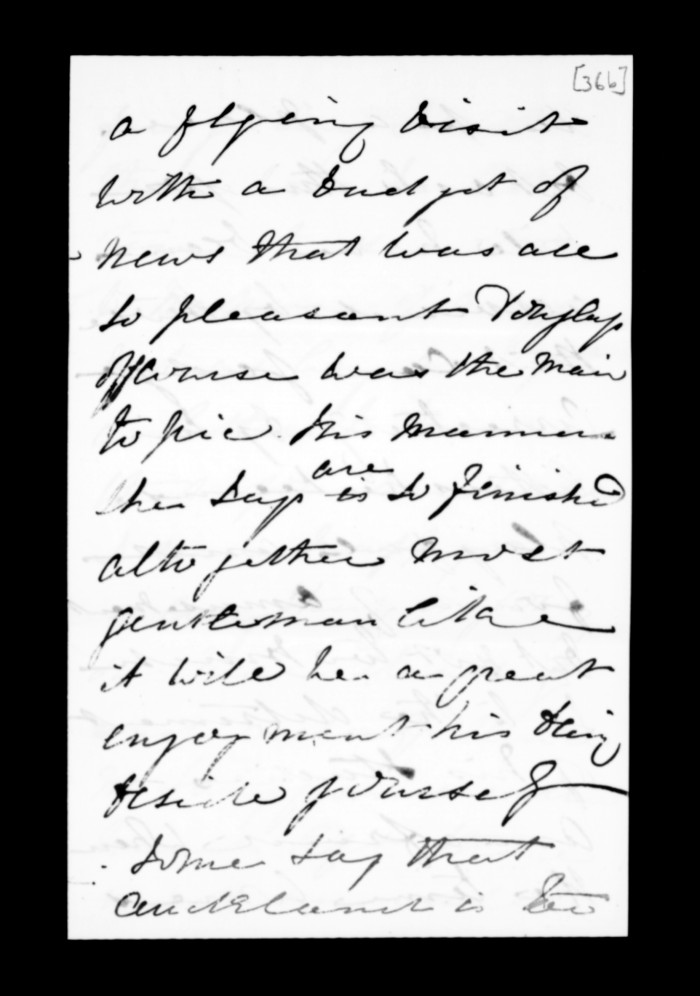 [36b]
a flying visit
with a budget of
news that was all
so pleasant Douglas
off course was the main
topic his manner
she says are is so finished
altogether most
gentleman like
it will be a great
enjoyment his being
beside yourself
Some say that
Auckland is to